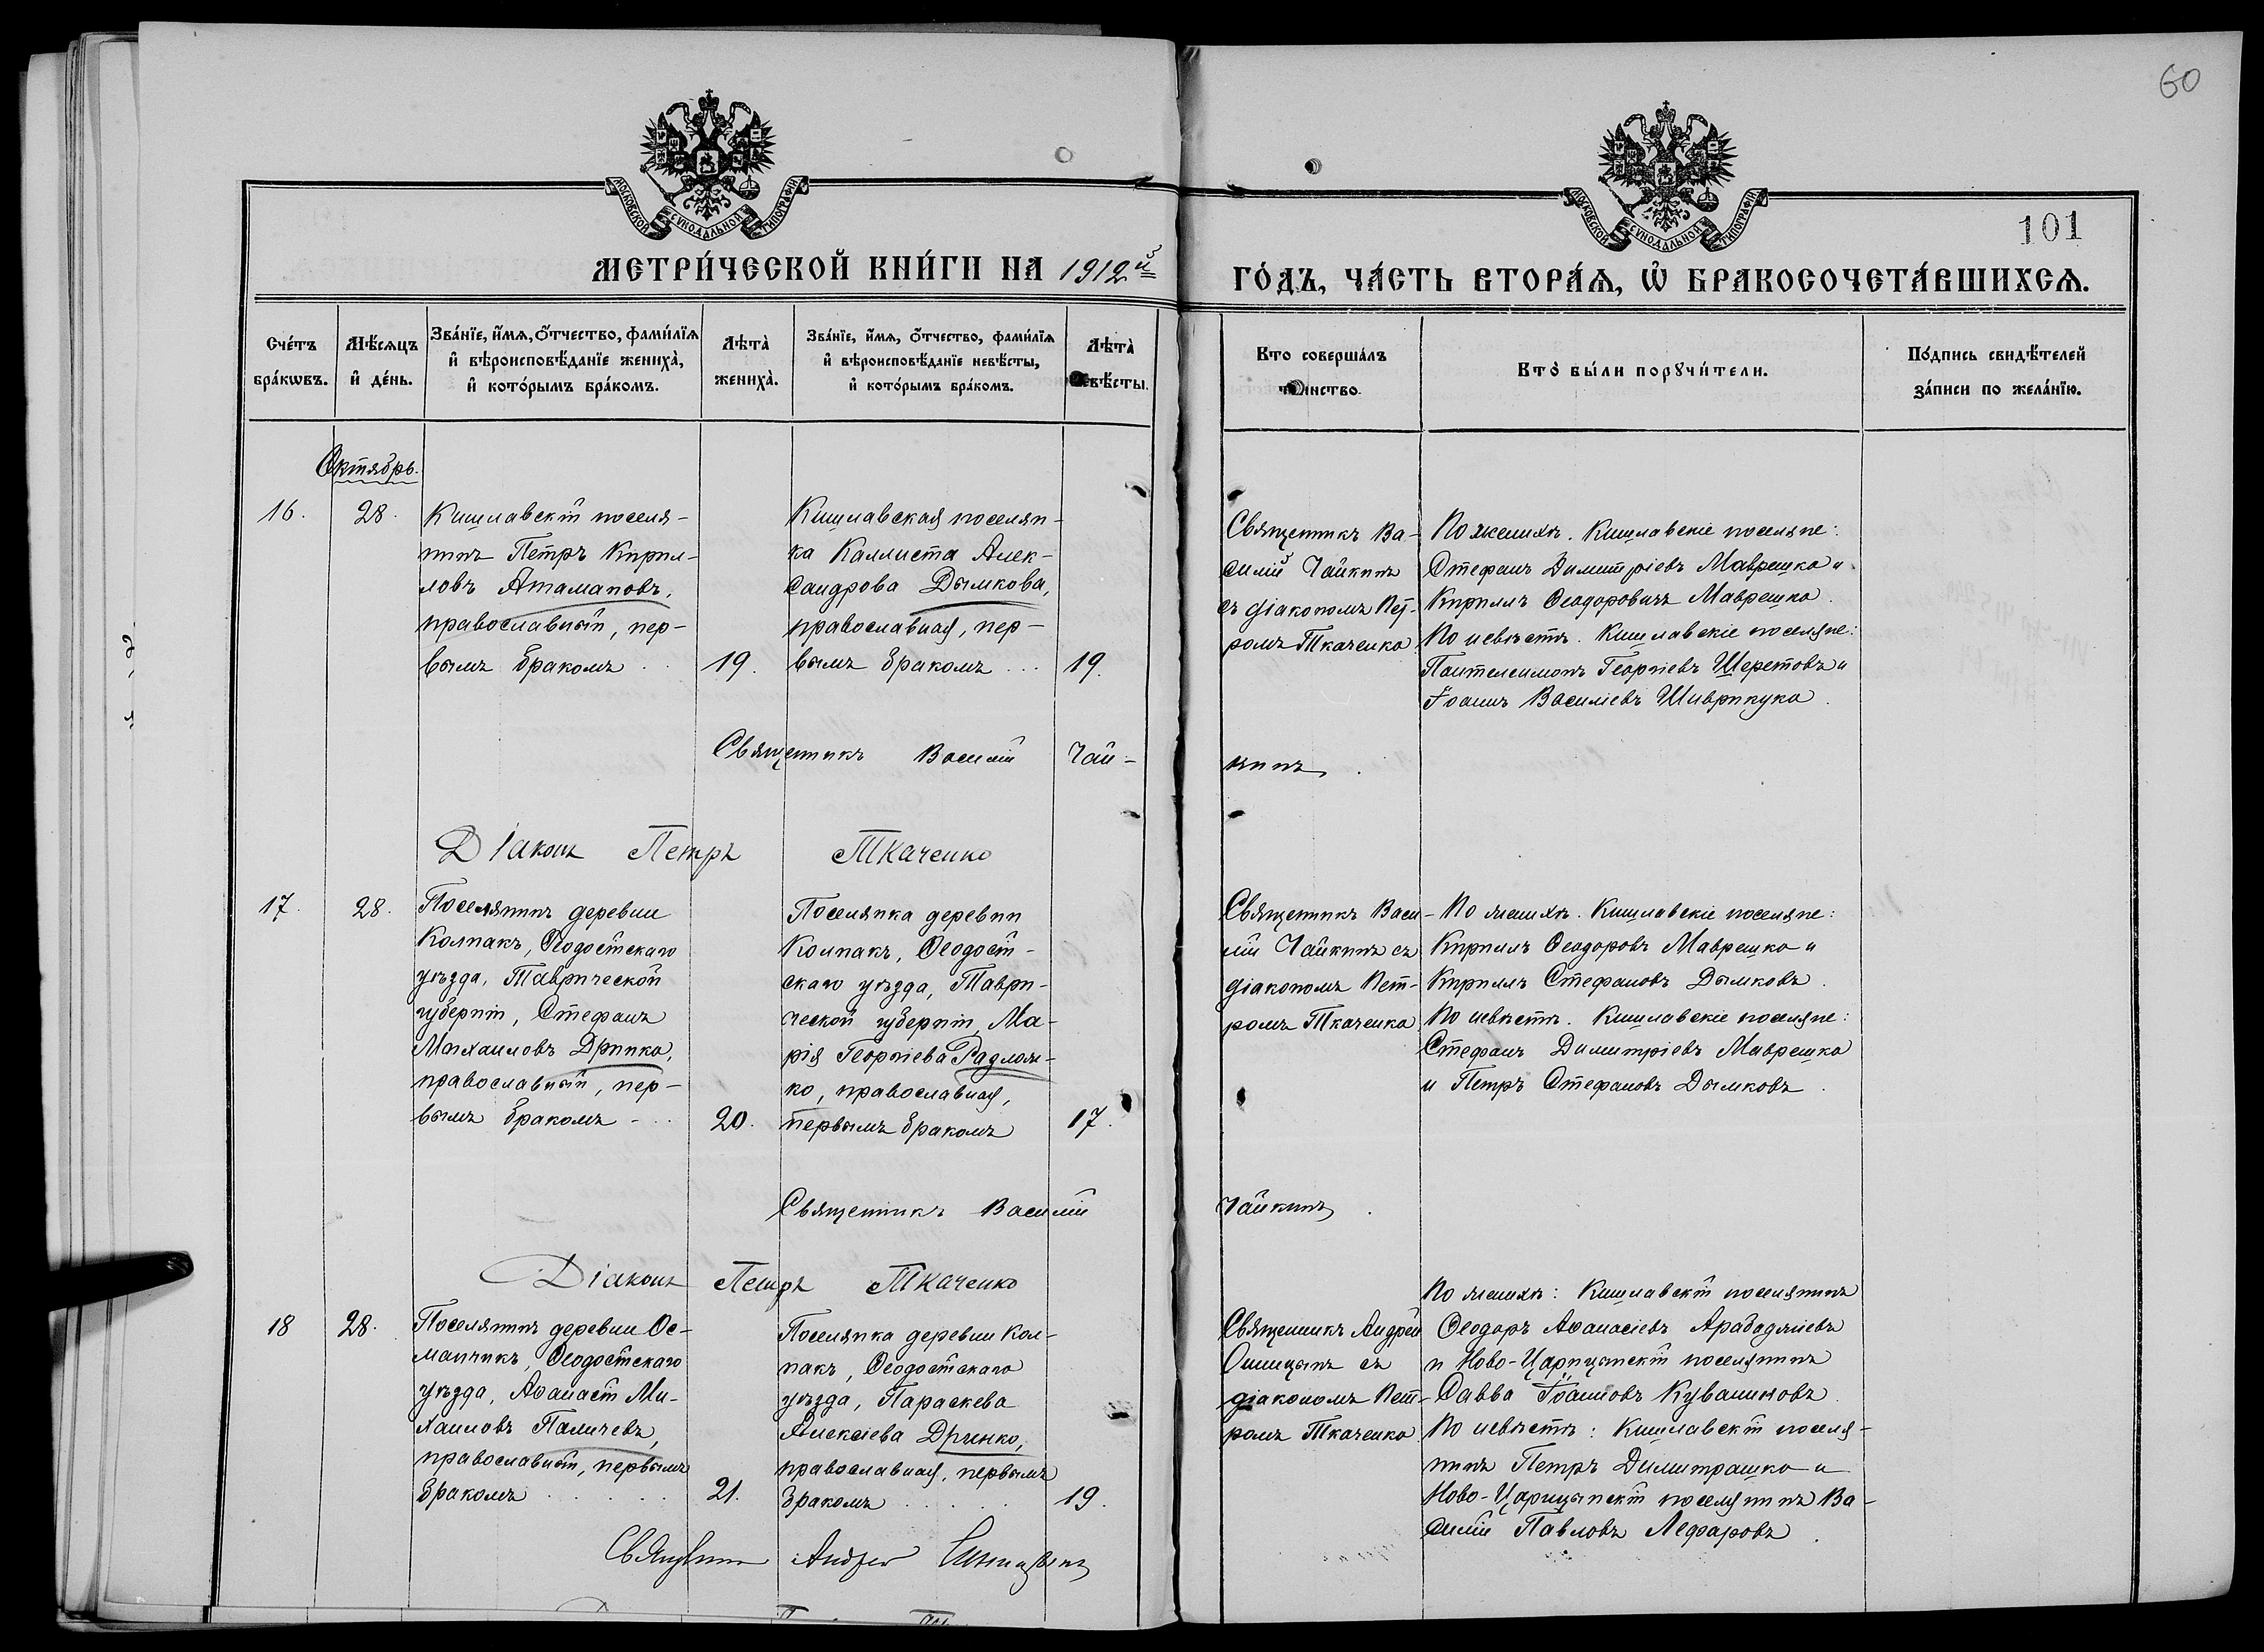 60
МОСКОВСКОЙ СѴНОДАЛЬНОЙ ТИПОГРАФІИ
МОСКОВСКОЙ СѴНОДАЛЬНОЙ ТИПОГРАФІИ
101
МЕТРИ́ЧЕСКОЙ КНИ́ГИ НА 1912й
ГО́ДЪ, ЧА́СТЬ ВТОРА́Ѧ, Ѡ҆ БРАКОСОЧЕТА́ВШИХСѦ.
Сче́тъ
бра́кѡвъ.
Мѣ́сѧцъ
и҆ де́нь.
Зва́нїе, и҆́мѧ, ѻ҆́тчество, фами́лїѧ
и҆ вѣроисповѣ́данїе женихà,
и҆ кото́рымъ бра́комъ.
Лѣтà
женихà.
Зва́нїе, и҆́мѧ, ѻ҆́тчество, фами́лїѧ
и҆ вѣроисповѣ́данїе невѣ́сты,
и҆ кото́рымъ бра́комъ.
Лѣтà
невѣ́сты.
Кто соверша́лъ
таинство.
Кто̀ бы́ли порꙋчи́тели.
По́дпись свидѣ́телей
за́писи по жела́нїю.
Октябрь.
16.
28.
Кишлавскій поселя-
нинъ Петръ Кирил-
ловъ Атамановъ,
православный, пер-
вымъ бракомъ . .
19.
Кишлавская поселян-
ка Каллиста Алек-
сандрова Дымкова,
православная, пер-
вымъ бракомъ . . .
19.
Священникъ Ва-
силій Чайкинъ
съ діакономъ Пет-
ромъ Ткаченко.
По женихѣ. Кишлавскіе поселяне:
Стефанъ Димитріевъ Маврешко и
Кириллъ Ѳеодоровичъ Маврешко.
По невѣстѣ. Кишлавскіе поселяне:
Пантелеимонъ Георгіевъ Шеретовъ и
Іоаннъ Василіевъ Шиврикуко.
Священникъ Василій Чай-
кинъ.
Діаконъ Петръ Ткаченко
17.
28.
Поселянинъ деревни
Колпакъ, Ѳеодосійскаго
уѣзда, Таврической
губерніи, Стефанъ
Михаиловъ Дринко,
православный, пер-
вымъ бракомъ - . .
20.
Поселянка деревни
Колпакъ, Ѳеодосій-
скаго уѣзда, Таври-
ческой губерніи, Ма-
рія Георгіева
ко, православная,
первымъ бракомъ
17.
Священникъ Васи-
лій Чайкинъ съ
діакономъ Пет-
ромъ Ткаченко.
По женихѣ. Кишлавскіе поселяне:
Кириллъ Ѳеодоровъ Маврешко и
Кириллъ Стефановъ Дымковъ.
По невѣстѣ. Кишлавскіе поселяне:
Стефанъ Димитріевъ Маврешко
и Петръ Стефановъ Дымковъ.
Священникъ Василій
Чайкинъ.
Діаконъ Петръ Ткаченко
18
28.
Поселянинъ деревни Ос-
манчикъ, Ѳеодосійскаго
уѣзда, Аѳанасій Ми-
хаиловъ Паличевъ,
православный, первымъ
бракомъ . . . . .
21.
Поселянка деревни Кол-
пакъ, Ѳеодосійскаго
уѣзда, Параскева
Алексіева Дринко,
православная, первымъ
бракомъ . . . . .
19.
Священникъ Андрей
съ
діакономъ Пет-
ромъ Ткаченко.
По женихѣ: Кишлавскій поселянинъ
Ѳеодоръ Аѳанасіевъ Арабаджіевъ
и Ново-Царицынскій поселянинъ
Савва Іоанновъ Куванжовъ.
По невѣстѣ: Кишлавскій поселя-
нинъ Петръ Димитрашко и
Ново-Царицынскій поселянинъ Ва-
силій Павловъ Лефаровъ.
Священникъ Андрей